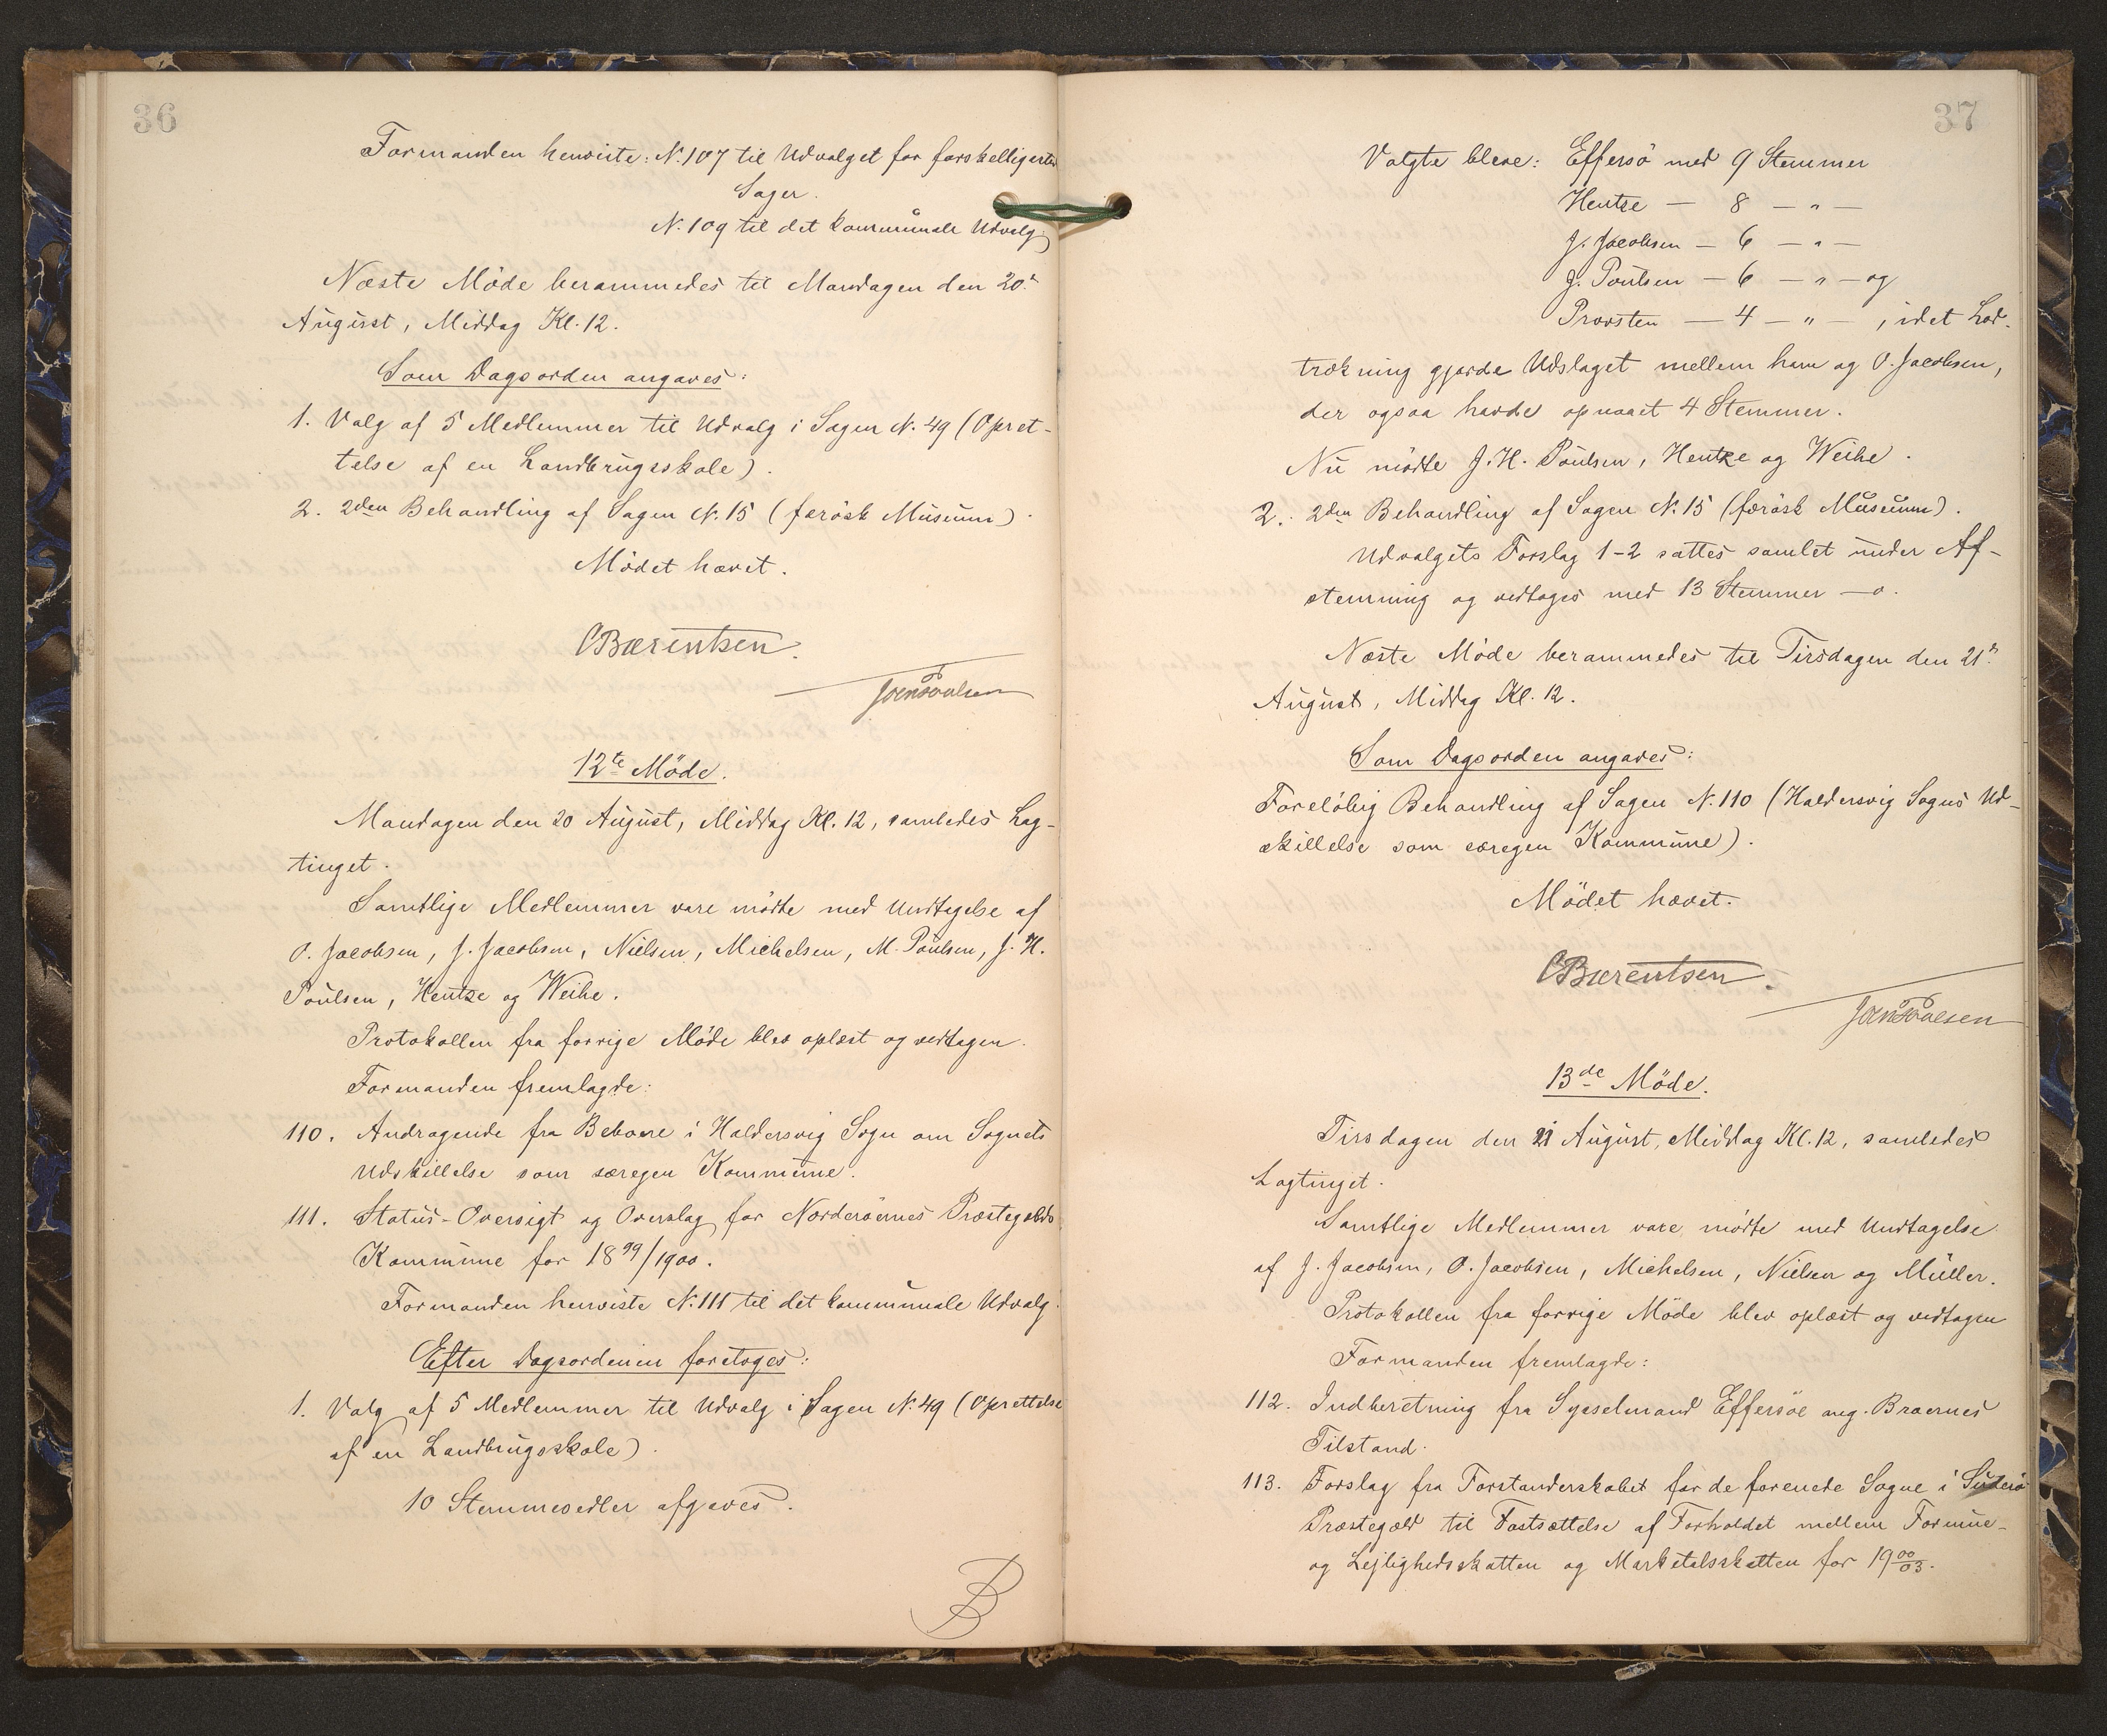 36
Formanden henviste: N. 107 til Udvalget for forskelligartede
Sager.
N. 109 til det kommunale Udvalg.
Næste Möde berammedes til Mandagen den 20de
August, Middag Kl. 12.
Som Dagsorden angaves:
1. Valg af 5 Medlemmer til Udvalg i Sagen N. 49 (Opret-
telse af en Landbrugsskole).
2. 2den Behandling af Sagen N. 15 (færösk Museum).
Mödet hævet.
CBærentsen.
JoenPoulsen
12te Möde.
Mandagen den 20 August, Middag Kl. 12, samledes Lag-
tinget.
Samtlige Medlemmer vare mödte med Undtagelse af
O. Jacobsen, J. Jacobsen, Nielsen, Michelsen, M. Poulsen, J. H.
Poulsen, Hentze og Weihe.
Protokollen fra forrige Möde blev oplæst og vedtagen.
Formanden fremlagde:
110. Andragende fra Beboere i Haldersvig Sogn om Sognets
Udskillelse som særegen Kommune.
111. Status-Oversigt og Overslag for Norderöernes Præstegjelds
Kommune for 1899/1900.
Formanden henviste N. 111 til det kommunale Udvalg.
Efter Dagsordenen foretoges:
1. Valg af 5 Medlemmer til Udvalg i Sagen N. 49 (Oprettelse
af en Landbrugsskole).
10 Stemmesedler afgaves.
B
37
Valgte bleve: Effersö med 9 Stemmer
Hentze — 8 — " —
J. Jacobsen — 6 — " —
J. Poulsen — 6 — " — og
Provsten — 4 — " — , idet Lod-
trækning gjorde Udslaget mellem ham og O. Jacobsen,
der ogsaa havde opnaaet 4 Stemmer.
Nu mödte J. H. Poulsen, Hentze og Weihe.
2. 2den Behandling af Sagen N. 15 (færösk Museum).
Udvalgets Forslag 1-2 sattes samlet under Af-
stemning og vedtoges med 13 Stemmer — o.
Næste Möde berammedes til Tirsdagen den 21de
August, Middag Kl. 12.
Som Dagsorden angaves:
Forelöbig Behandling af Sagen N. 110 (Haldersvig Sogns Ud-
skillelse som særegen Kommune).
Mödet hævet.
CBærentsen.
JoenPoulsen
13de Möde.
Tirsdagen den 21 August, Middag Kl. 12, samledes
Lagtinget.
Samtlige Medlemmer vare mödte med Undtagelse
af J. Jacobsen, O. Jacobsen, Michelsen, Nielsen og Müller.
Protokollen fra forrige Möde blev oplæst og vedtagen
Formanden fremlagde:
112. Indberetning fra Sysselmand Effersöe ang. Braernes
Tilstand.
113. Forslag fra Forstanderskabet for de forenede Sogne i Suderö
Præstegæld til Fastsættelse af Forholdet mellem Formue-
og Lejlighedsskatten og Marketalsskatten for 19 00/03.